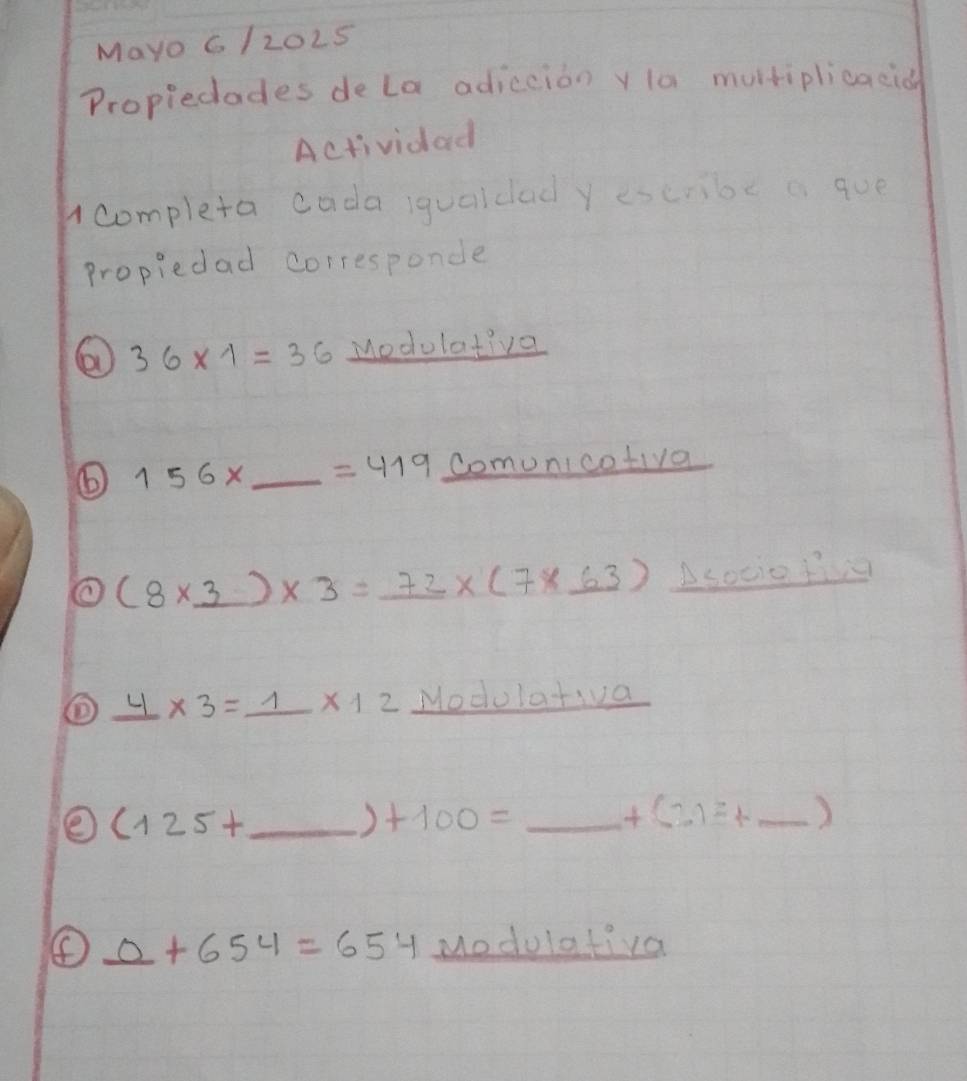 Mayo 6/2025
Propiedades de La adicción y la multiplicació
Actividad
1 Completa cada igualdad y escribe a que
propiedad corresponde
a 36 x 1 = 36 Modulativa
b 156 x ___ = 419 Comunicativa
c (8 x 3) x 3 = 72 x (7 x 63) Asociativa
D 4 x 3 = 1 x 12 Modulativa
e (125 + ___) + 100 = ___ + ( + ___)
f 0 + 654 = 654 Modulativa